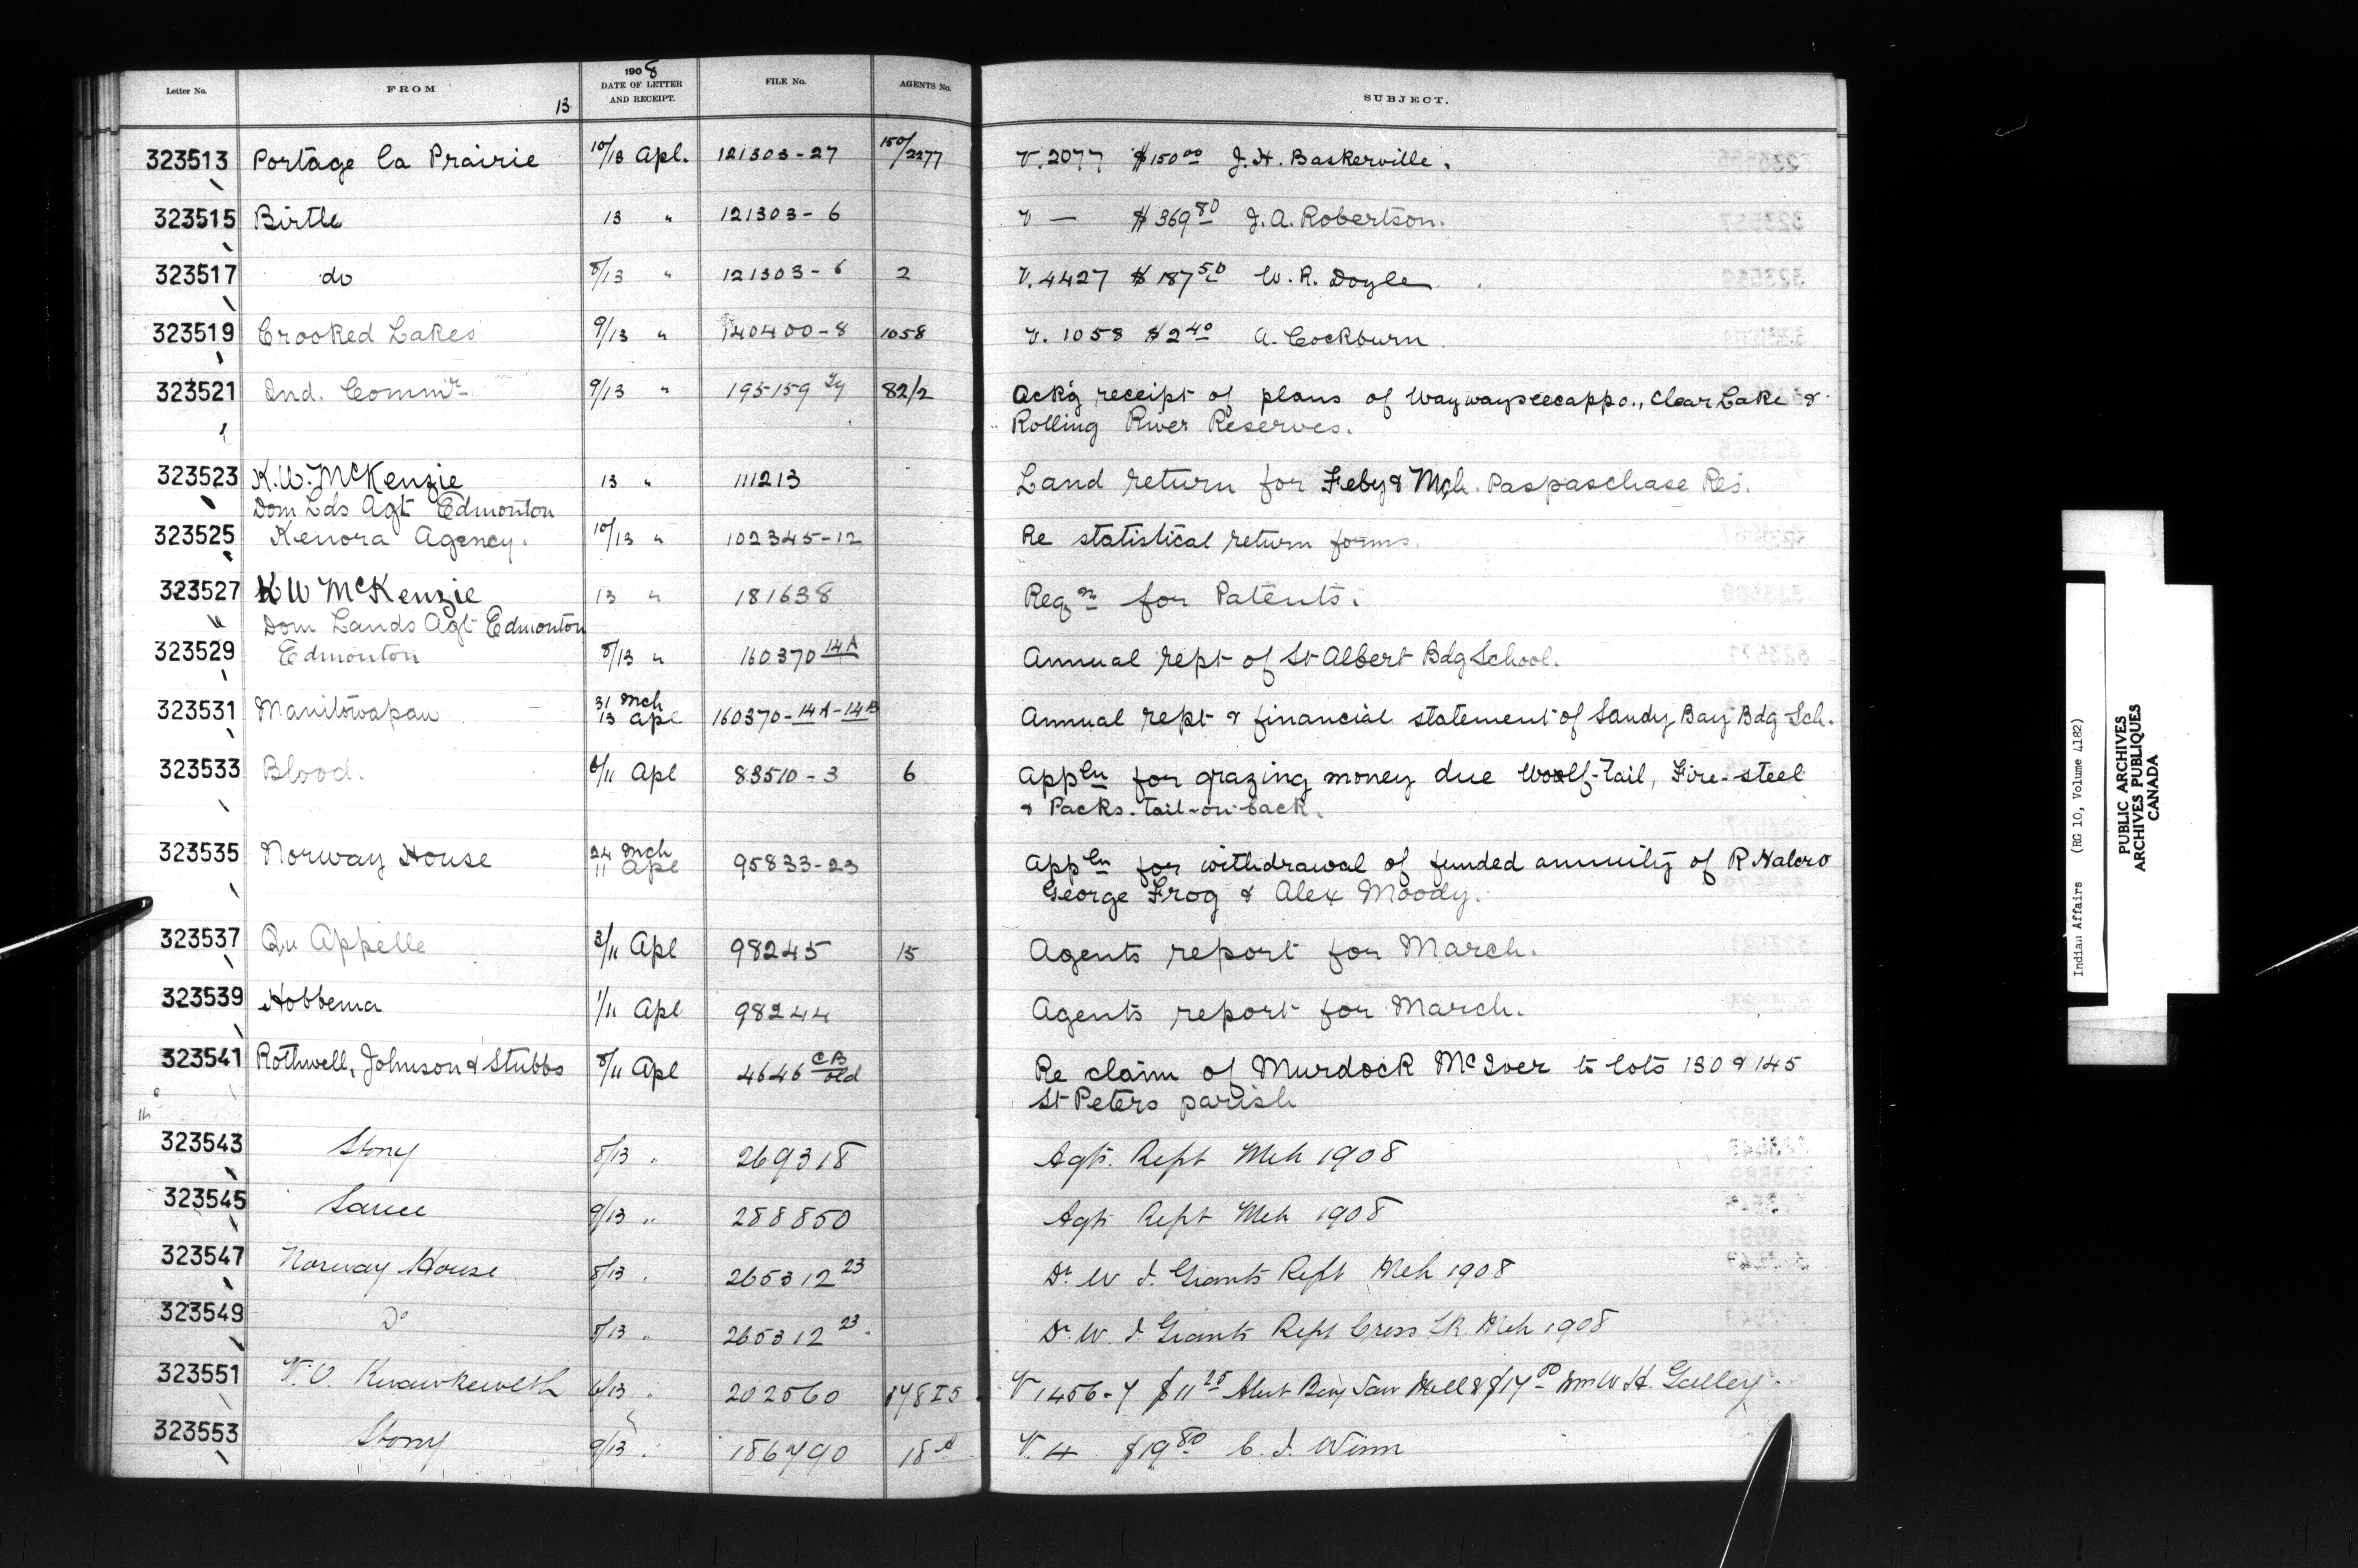 Letter No. FROM 13 1908 DATE OF LETTER AND RECEIPT. FILE No. AGENTS No. SUBJECT.
323513 Portage la Prairie 10/13 Apl. 121303-27 150/2277 V. 2077 $150 00 J. H. Baskerville.
323515 Birtle 13 " 121303-6 V — $369 80 J. A. Robertson.
323517 do 8/13 " 121303-6 2 V. 4427 $187 50 W. R. Doyle
323519 Crooked Lakes 9/13 " 140400-8 1058 V. 1058 $2 40 A. Cockburn
323521 Ind. Commr 9/13 " 195159 82/2 Ack'g receipt of plans of Waywayseecappo., Clear Lake &
Rolling River Reserves.
323523 K. W. McKenzie 13 " 111213 Land return for Feby & Mch. Paspaschase Res.
Dom Lds Agt Edmonton
323525 Kenora Agency. 10/13 " 102345-12 Re statistical return forms.
323527 K W McKenzie 13 " 181638 Reqn for Patents.
Dom Lands Agt Edmonton
323529 Edmonton 8/13 " 160370 14A Annual rept of St Albert Bdg School.
323531 Manitowapaw 31 Mch 13 Apl 160370-14A-14B Annual rept & financial statement of Sandy Bay Bdg Sch.
323533 Blood. 6/11 Apl 83510-3 6 Appln for grazing money due Woolf-Tail, Fire-steel
& Packs-tail-on-back.
323535 Norway House 24 Mch 11 Apl 95833-23 Appln for withdrawal of funded annuity of R Halcro
George Frog & Alex Moody.
323537 Qu Appelle 3/11 Apl 98245 15 Agents report for March.
323539 Hobbema 1/11 Apl 98244 Agents report for March.
323541 Rothwell, Johnson & Stubbs 8/11 Apl 4646 CB old Re claim of Murdock McIver to lots 130 & 145
St Peters parish
323543 Stony 8/13 " 269318 Agts. Rept Mch 1908
323545 Sarcee 9/13 " 288850 Agts Rept Mch 1908
323547 Norway House 8/13 " 265312 23 Dr W J. Grants Rept Mch 1908
323549 Do 8/13 " 265312 23 Dr. W. J. Grants Rept Cross Lk. Mch 1908
323551 V. O. Kwawkewlth 6/13 " 202560 V 1456-7 $11 25 Alert Bay Saw Mill & $17 00 Wm W. H. Galley.
323553 Stony 9/13 " 186790 18A V. 4 $19 80 C. J. Winn
Indian Affairs (RG 10, Volume 4182)
PUBLIC ARCHIVES
ARCHIVES PUBLIQUES
CANADA